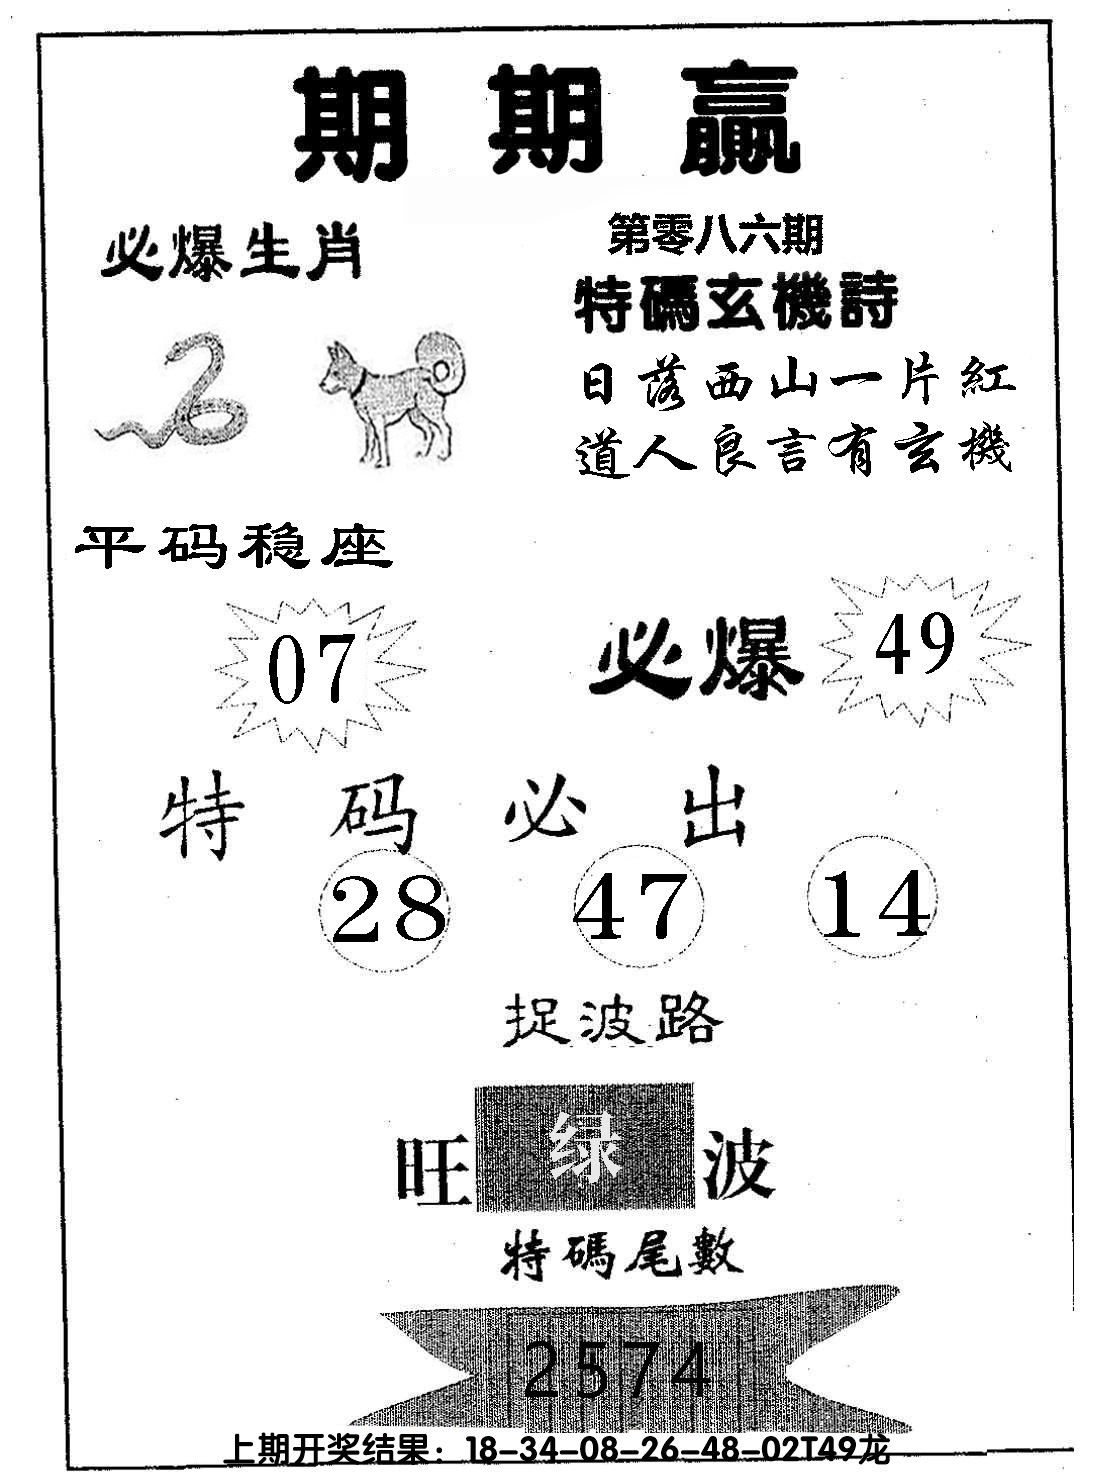 期期贏
必爆生肖
第零八六期
特碼玄機詩
日落西山一片紅
道人良言有玄機
平码稳座
07
必爆 49
特码必出
28 47 14
捉波路
旺 绿 波
特碼尾數
2574
上期开奖结果：18-34-08-26-48-02T49龙